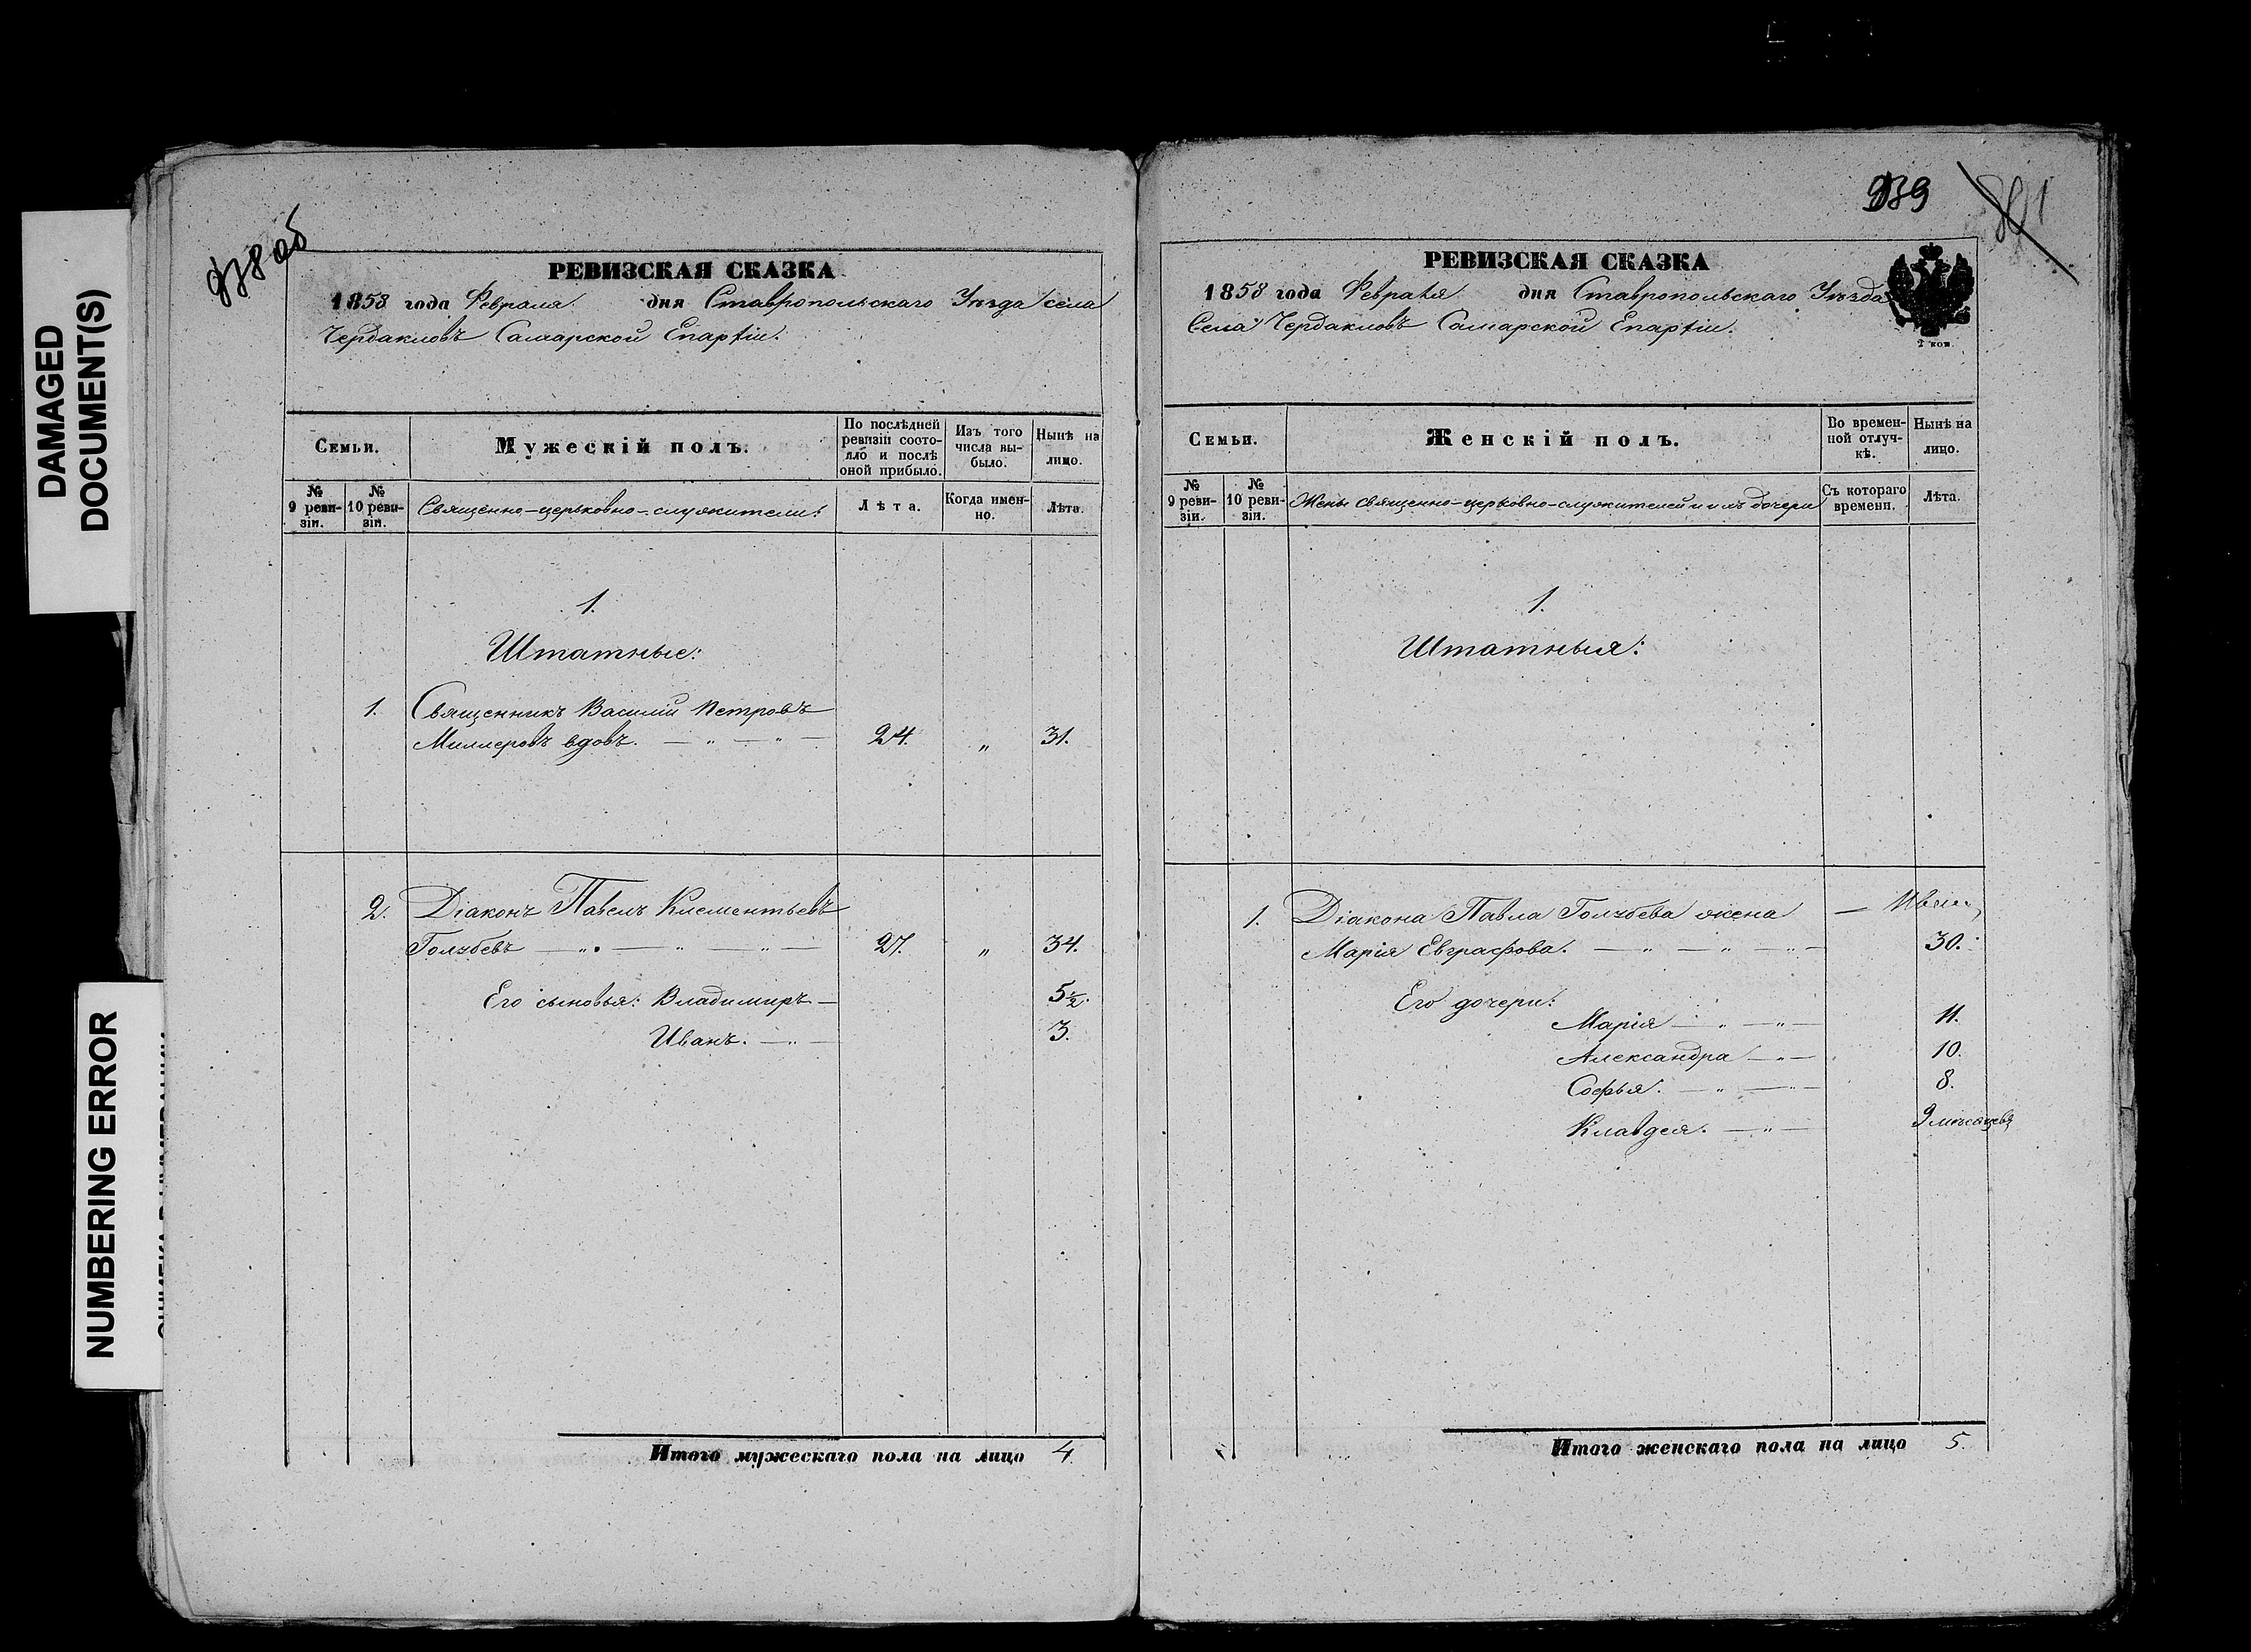 DAMAGED
DOCUMENT(S)
NUMBERING ERROR
938 об
РЕВИЗСКАЯ СКАЗКА
1858 года Февраля дня Ставропольскаго Уѣзда села
Чердакловъ Самарской Епархіи.
Семьи.
Мужескій полъ.
По послѣдней ревизіи состояло и послѣ оной прибыло.
Изъ того числа выбыло.
Нынѣ на лицо.
№ 9 ревизіи.
№ 10 ревизіи.
Священно-церковно-служители:
Лѣта.
Когда именно.
Лѣта.
1.
Штатные:
1. Священникъ Василій Петровъ
Миллеровъ вдовъ. — " — " — 24. " 31.
2. Діаконъ Павелъ Клементьевъ
Голубевъ — " — " — " — 27. " 34.
Его сыновья: Владимиръ — 5 1/2.
Иванъ. — " — 3.
Итого мужескаго пола на лицо 4
939
РЕВИЗСКАЯ СКАЗКА
1858 года Февраля дня Ставропольскаго Уѣзда
Села Чердакловъ Самарской Епархіи.
2 коп.
Семьи.
Женскій полъ.
Во временной отлучкѣ.
Нынѣ на лицо.
№ 9 ревизіи.
№ 10 ревизіи.
Жены священно-церковно-служителей и ихъ дочери
Съ котораго времени.
Лѣта.
1.
Штатныя:
1. Діакона Павла Голубева жена —
Марія Евграфова. — " — " — " — 30.
Его дочери:
Марія — " — " — 11.
Александра — " — 10.
Софья. — " — " — 8.
Клавдея. — " — 9 мѣсяцевъ
Итого женскаго пола на лицо 5.